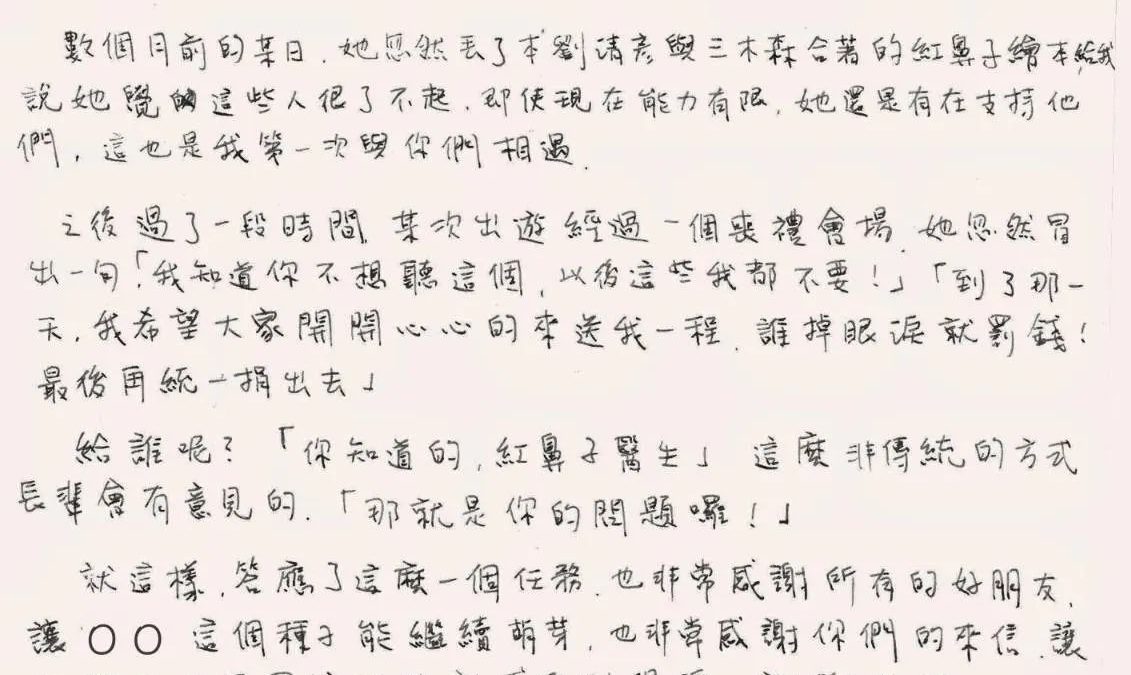 數個月前的某日,她忽然丟了本劉清彥與三木森合著的紅鼻子繪本給我
說她覺的這些人很了不起,即使現在能力有限,她還是有在支持他
們,這也是我第一次與你們相遇.
之後過了一段時間,某次出遊經過一個喪禮會場,她忽然冒
出一句「我知道你不想聽這個,以後這些我都不要!」「到了那一
天,我希望大家開開心心的來送我一程,誰掉眼淚就罰錢!
最後再統一捐出去」
給誰呢?「你知道的,紅鼻子醫生」這麼非傳統的方式
長輩會有意見的.「那就是你的問題囉!」
就這樣,答應了這麼一個任務,也非常感謝所有的好朋友,
讓〇〇這個種子能繼續萌芽,也非常感謝你們的來信,讓